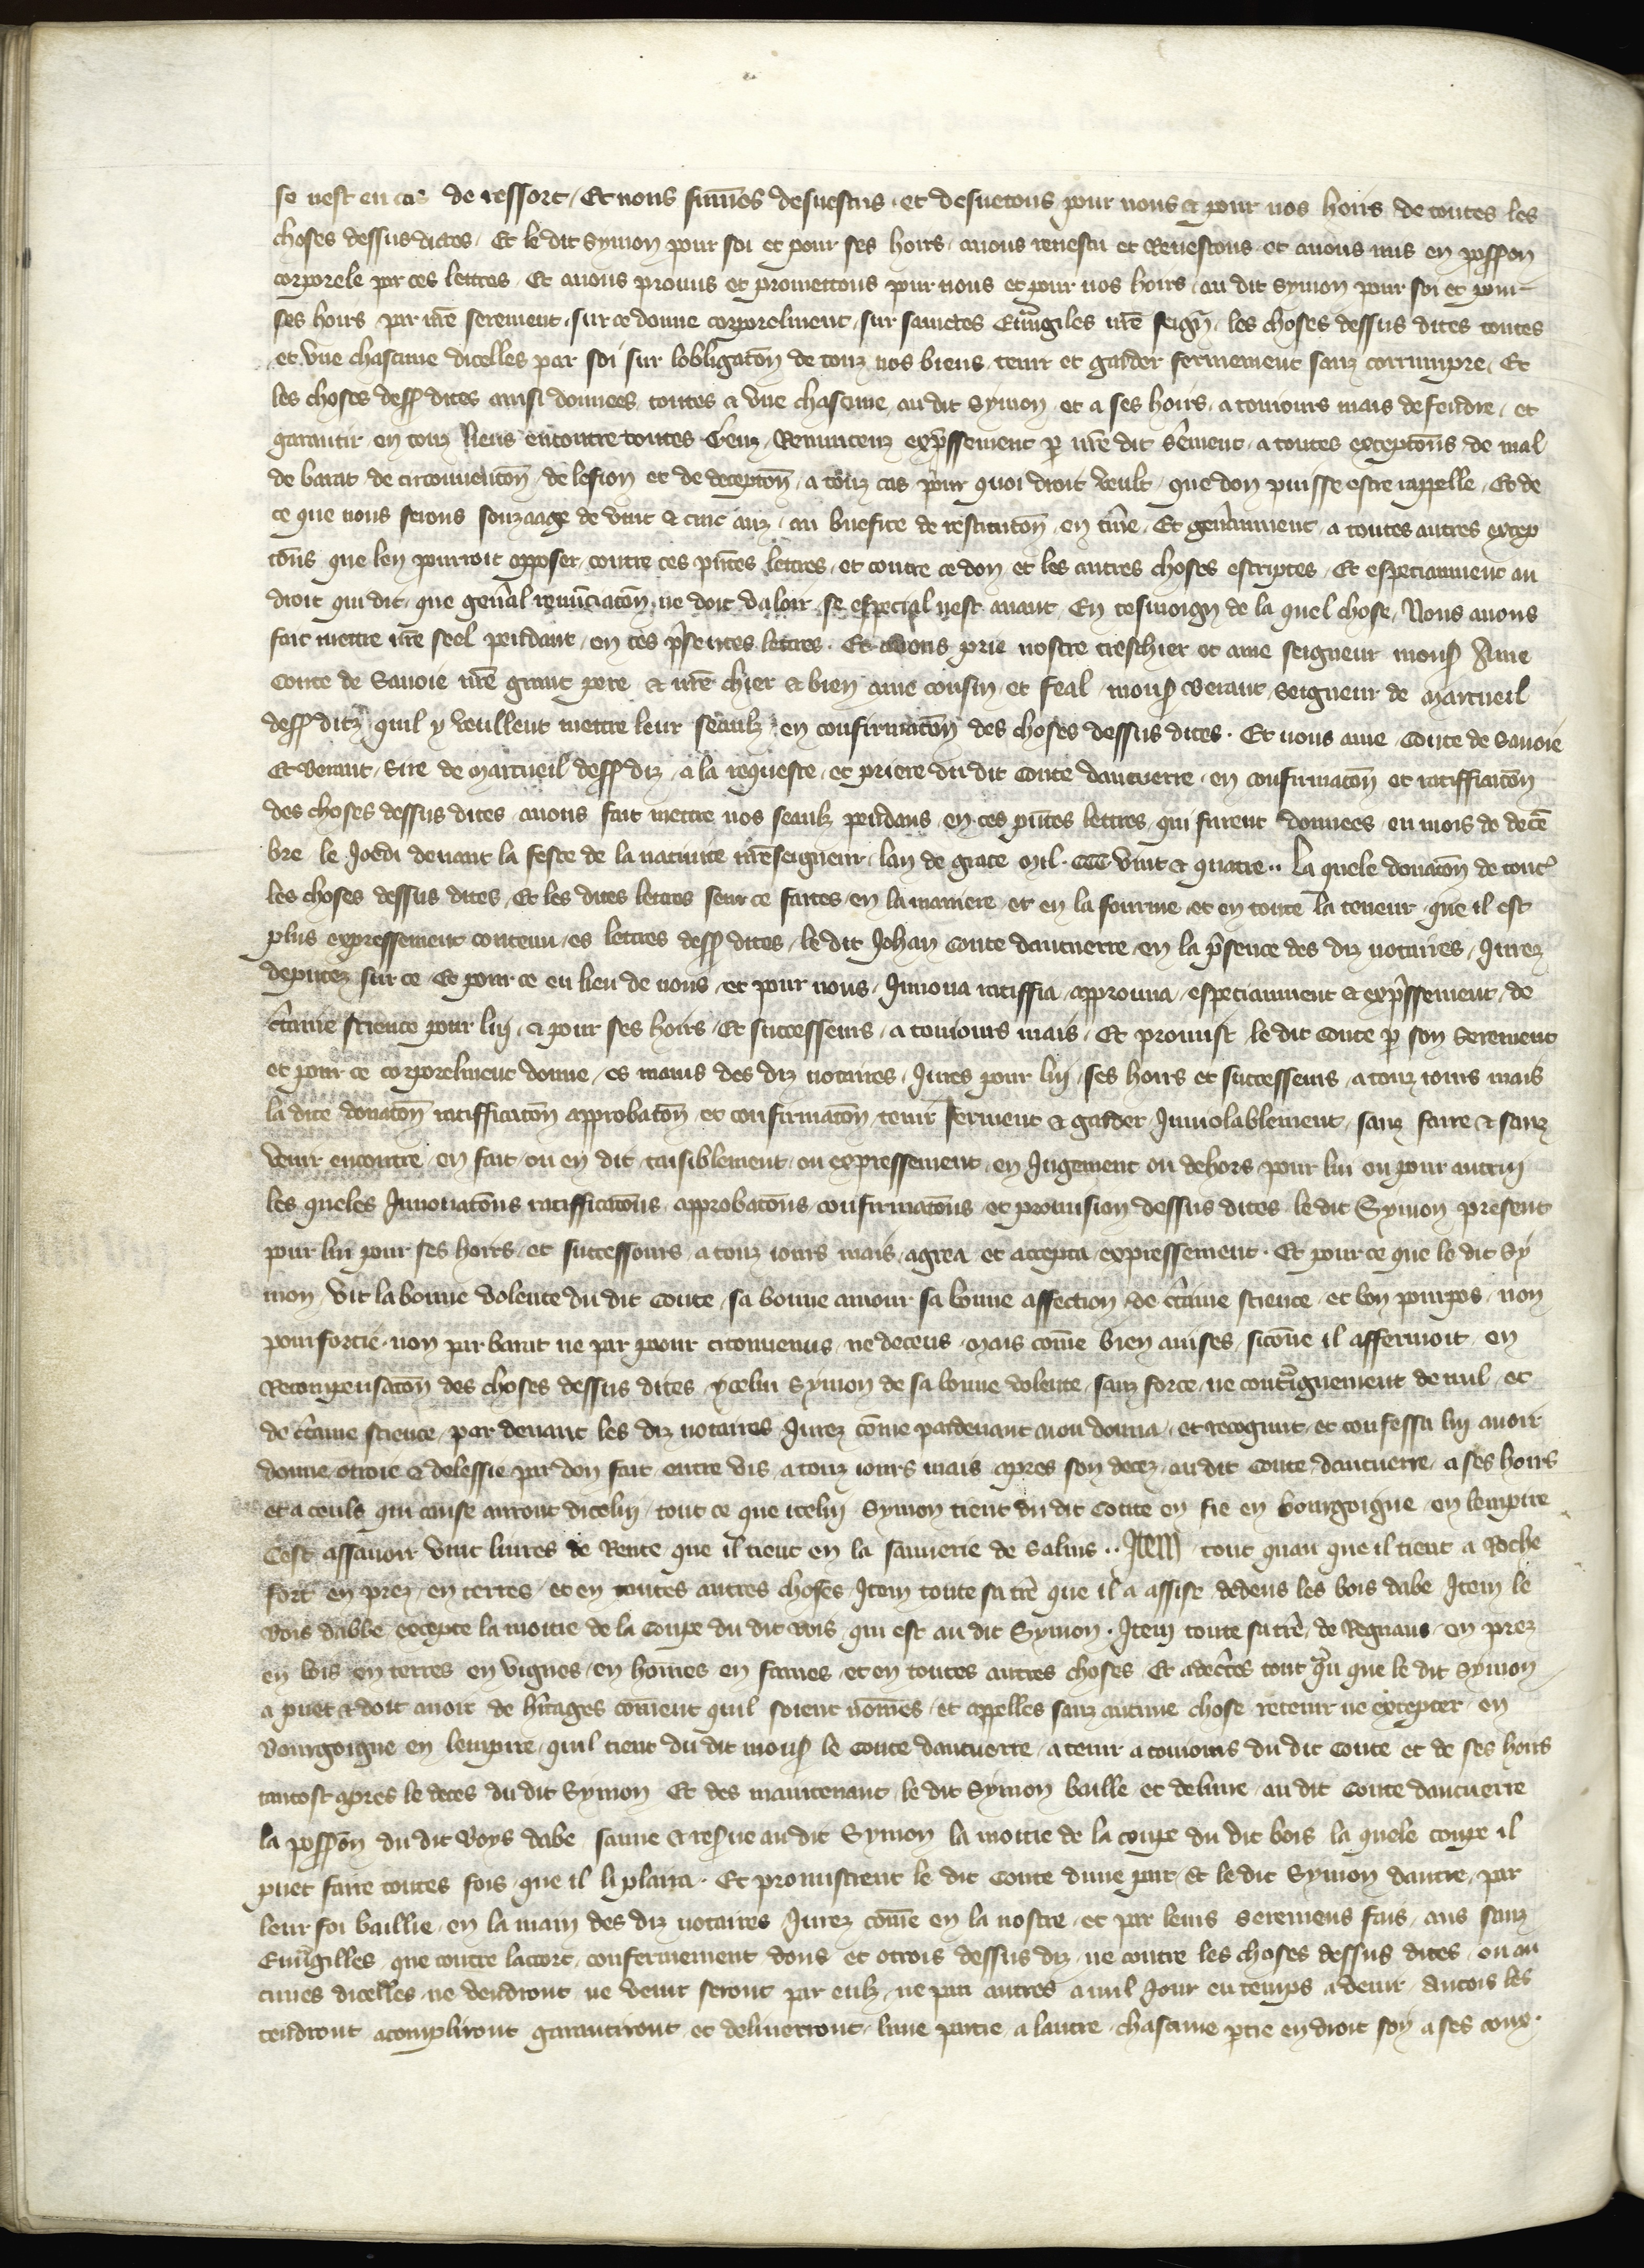 se nest en cas de ressort / Et nous sum̄es desuestus . et desuetons pour nous et pour nos hoirs de toutes les
choses dessus dictes . Et le dit Symon pour soi et pour ses hoirs . auons reuestu et Reuestons et auons mis en poss̄on
corporele par ces lettres . Et auons promis et promettons pour nous et pour nos hoirs . au dit Symon pour soi et pour
ses hoirs par nr̄e serement . sur ce donne corporelment . sur sainctes Euuāgiles nr̄e seign̄ . les choses dessus dites toutes
et vne chascune dicelles par soi sur lobligatōn de touz nos biens . tenir et garder fermement sanz corrumpre . Et
les choses dess̄ dites ainsi donnees toutes et vne chascune au dit Symon et a ses hoirs . a touiours mais defendre . et
garantir en touz lieus encontre toutes Genz . Renuncenz exp̄ssement p̄ nr̄e dit s̄ement . a toutes exceptōns de mal
de barat de circonuentōn . de lesion et de deceptōn . a touz cas pour quoi droit veult . que don puisse estre rappelle . Et de
ce que nous serions souz aage de vint et cinc anz . au bn̄efice de restitutōn en tiue . Et gen̄aument a toutes autres excep
tōns que len pourroit opposer contre ces pn̄tes lettres . et contre ce don et les autres choses escriptes . Et especiaument au
droit qui dit . que gen̄al renūciatōn ne doit valoir se especial nest auant . En tesmoign de la quel chose . Nous auons
fait mettre nr̄e seel pendant . en ces p̄sentes lettres . Et auons prie nostre treschier et ame seigneur mons̄ Ame
Conte de Sauoie nr̄e grant pere et nr̄e chier et bien ame cousin et feal mons̄ Beraut seigneur de Marcueil
dess̄ ditz . quil y veullent mettre leur seaulz en confirmatōn des choses dessus dites . Et nous ame Conte de Sauoie
Et Beraut . Sire de Marcueil dess̄ diz . a la requeste . et priere du dit Conte daucuerre . en confirmatōn et ratifficatōn
des choses dessus dites . auons fait mettre nos seaulz pendans . en ces pn̄tes lettres qui furent donnees en mois de decē
bre le Joedi deuant la feste de la natiuite nr̄eseigneur . lan de grace Mil . CCC vint et quatre .. La quele donatōn de tout̄
les choses dessus dites . Et les dites lettres seur ce faites en la maniere et en la fourme et en toute la teneur . que il est
plus expressement contenu es lettres dess̄ dites . le dit Johan Conte daucuerre en la p̄sence des diz notaires . Jurez
deputez sur ce . Et pour ce en lieu de nous . et pour nous . Innoua ratiffia approuua . especiaument et exp̄ssement . de
c̄taine science pour lui . et pour ses hoirs . Et successeurs . a touiours mais . Et promist le dit Conte p̄ son serement
et pour ce corporelment donne . es mains des diz notaires . Jures pour lui . ses hoirs et successeurs . a touz iours mais
la dite donatōn ratifficatōn approbatōn et confirmatōn tenir ferment et garder Inuiolablement . sanz faire et sanz
venir encontre en fait . ou en dit . taisiblement ou expressement . en Jugement ou dehors . pour lui ou pour autrui
les queles Innouatōns ratifficatōns approbatōns confirmatōns et promision dessus dites le dit Symon present
pour lui pour ses hoirs . et successours . a touz iours mais . agrea et accepta expressement . Et pour ce que le dit Sy
mon . vit la bonne volente du dit Conte . sa bonne amour sa bonne affection . de c̄taine science . et bon pourpos . non
pour forcie . non par barat ne par paour circonuenus . ne deceus . Mais com̄e bien auises . sicom̄e il affermoit . en
Recompensatōn des choses dessus dites . ycelui Symon de sa bonne volente . sanz force . ne contrāignement de nul . et
de c̄taine science . par deuant les diz notaires Jurez com̄e pardeuant nou donna . et recognut . et confessa lui auoir
donne otroie et delessie par don fait entre vis . a touz iours mais apres son decez . au dit Conte daucuerre a ses hoirs
et a ceuls qui cause auront dicelui . tout ce que icelui Symon tient du dit Conte en fie en bourgoigne . en lempire
Cest assauoir vint liures de Rente que il tient en la saunerie de Salins .. Item tout quan que il tient a Roche
fort en prez . en terres . et en toutes autres choses . Item toute sa tr̄e que il a assise dedens les bois dabe Item le
Bois dabbe excepte la moitie de la coupe du dit Bois . qui est au dit Symon . Item toute sa tr̄e de Regnaus . en prez
en bois en terres en vignes . en hom̄es en fames . et en toutes autres choses Et adec̄tes tout q̄n que le dit Symon
a puet et doit auoir de h̄itages com̄ent quil soient nom̄es . et appelles sanz aucune chose retenir ne excepter . en
Bourgoigne en lempire . quil tient du dit mons̄ le Conte daucuerre . a tenir a touiours du dit Conte et de ses hoirs
tantost apres le deces du dit Symon Et des maintenant . le dit Symon baille et deliure . au dit Conte daucuerre
la poss̄on du dit Boys dabe sauue et res̄ue au dit Symon la moitie de la coupe du dit bois la quele coupe il
puet faire toutes fois . que il li plaira . Et promistrent le dit Conte dune part . Et le dit Symon dautre . par
leur foi baillie . en la main des diz notaires Jurez com̄e en la nostre . et par leurs seremens fais . aus sanz
Euuāgilles . que contre lacort . confermement dons et otrois dessus diz . ne contre les choses dessus dites . ou au
cunes dicelles ne vendront ne venir feront par eulz . ne par autres a nul Jour en temps a venir . Ancois les
tendront acompliront garantiront et deliuerront . lune partie a lautre . chascune p̄tie en droit soy a ses couz .